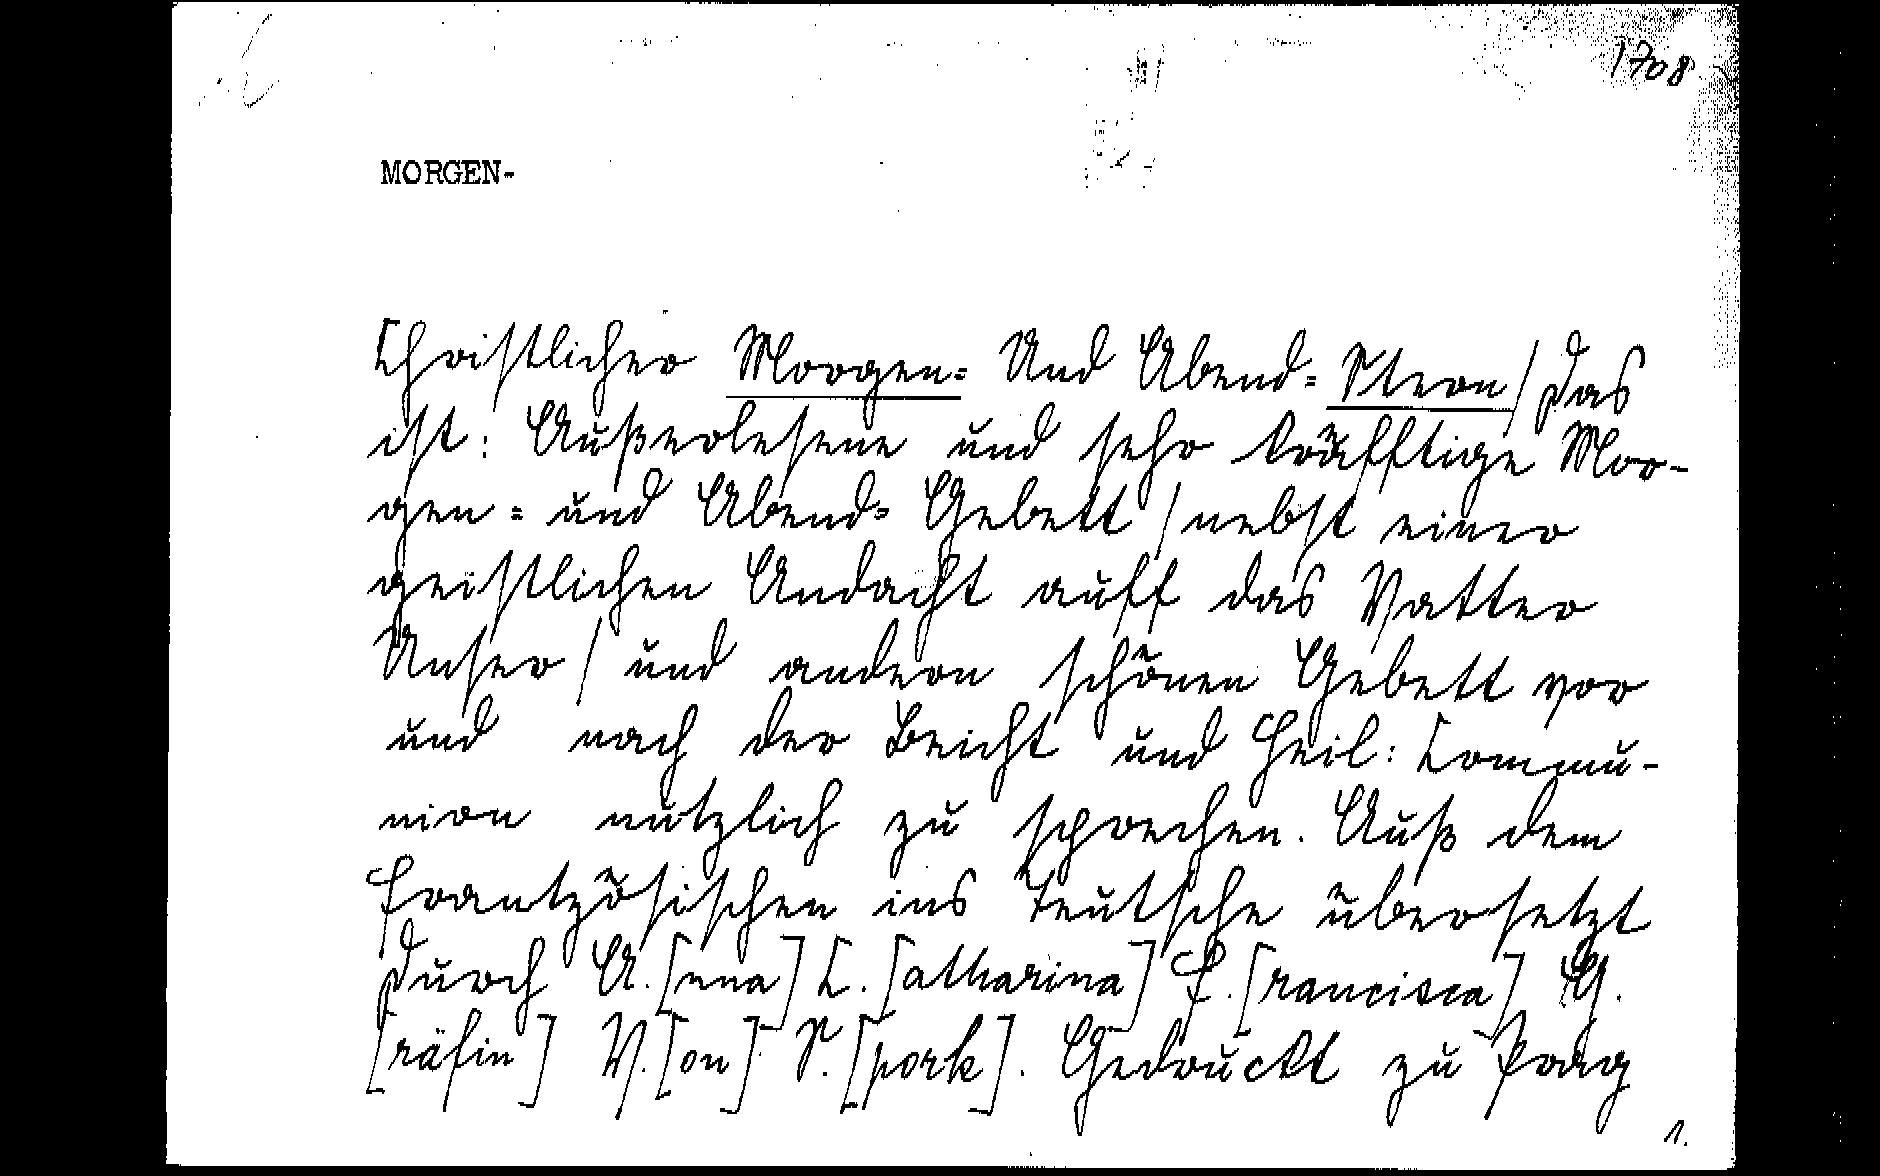 1708
MORGEN-
Christlicher Morgen= Und Abend= Stern / Das
ist: Außerlesene und sehr kräfftige Mor-
gen= und Abend= Gebett / nebst einer
geistlichen Andacht auff das Vatter
Unser / und andern schönen Gebett vor
und nach der Beicht und Heil: Commu-
nion nutzlich zu sprechen. Auß dem
Frantzösischen ins Teutsche übersetzt
Durch A.[nna] C.[atharina] F.[rancisca] G.
[räfin] V.[on] S.[pork]. Gedruckt zu Prag
1.